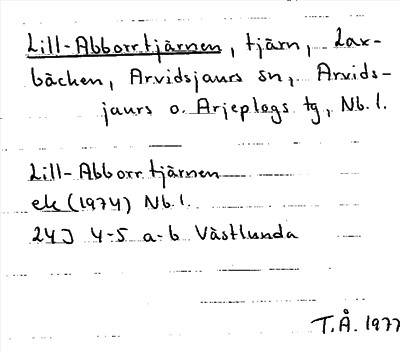 Lill-Abborrtjärnen, tjärn, Lax-
bäcken, Arvidsjaurs sn, Arvids-
jaurs o. Arjeplogs tg, Nb. l.
Lill-Abborrtjärnen
ek (1974) Nb. l.
24J 4-5 a-b Västlunda
T.Å. 1977